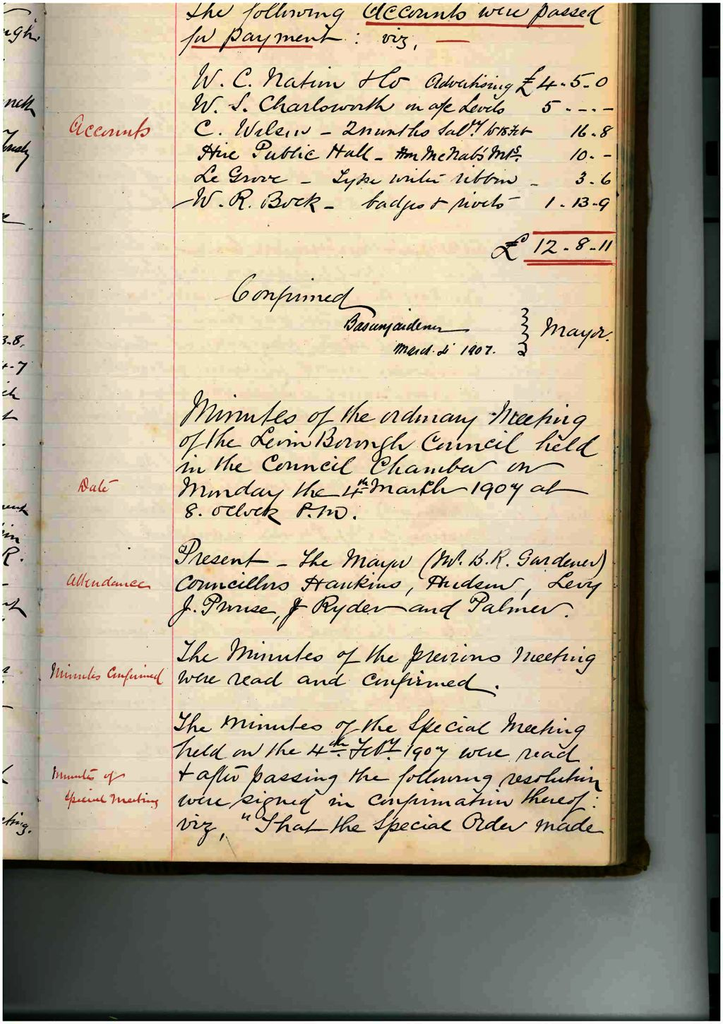 The following Accounts were passed
for payment : viz, —
Accounts
W. C. Nation & Co Advertising £ 4-5-0
W. S. Charlsworth on a/c Levels 5 - - -
C. Wilson - 2 months Saly 16-8
Hire Public Hall - Mr McNab's 10 - -
Le Grove - Type writer ribbon - 3-6
W. R. Bock - badges & rivets 1-13-9
£ 12-8-11
Confirmed
BRGardener
March 4 1907. } Mayor.
Minutes of the ordinary Meeting
of the Levin Borough Council held
in the Council Chamber on
Date
Monday the 4th March 1907 at
8. oclock P.M.
Present - The Mayor (Mr. B.R. Gardener)
Attendance
Councillors Hankins, Hudson, Levy
J. Prouse, J Ryder and Palmer.
The Minutes of the previous Meeting
Minutes Confirmed
were read and confirmed.
The Minutes of the Special Meeting
held on the 4th Feby. 1907 were read
Minutes of
Special Meeting
& after passing the following resolution
were signed in confirmation thereof :
viz, "That the Special Order made